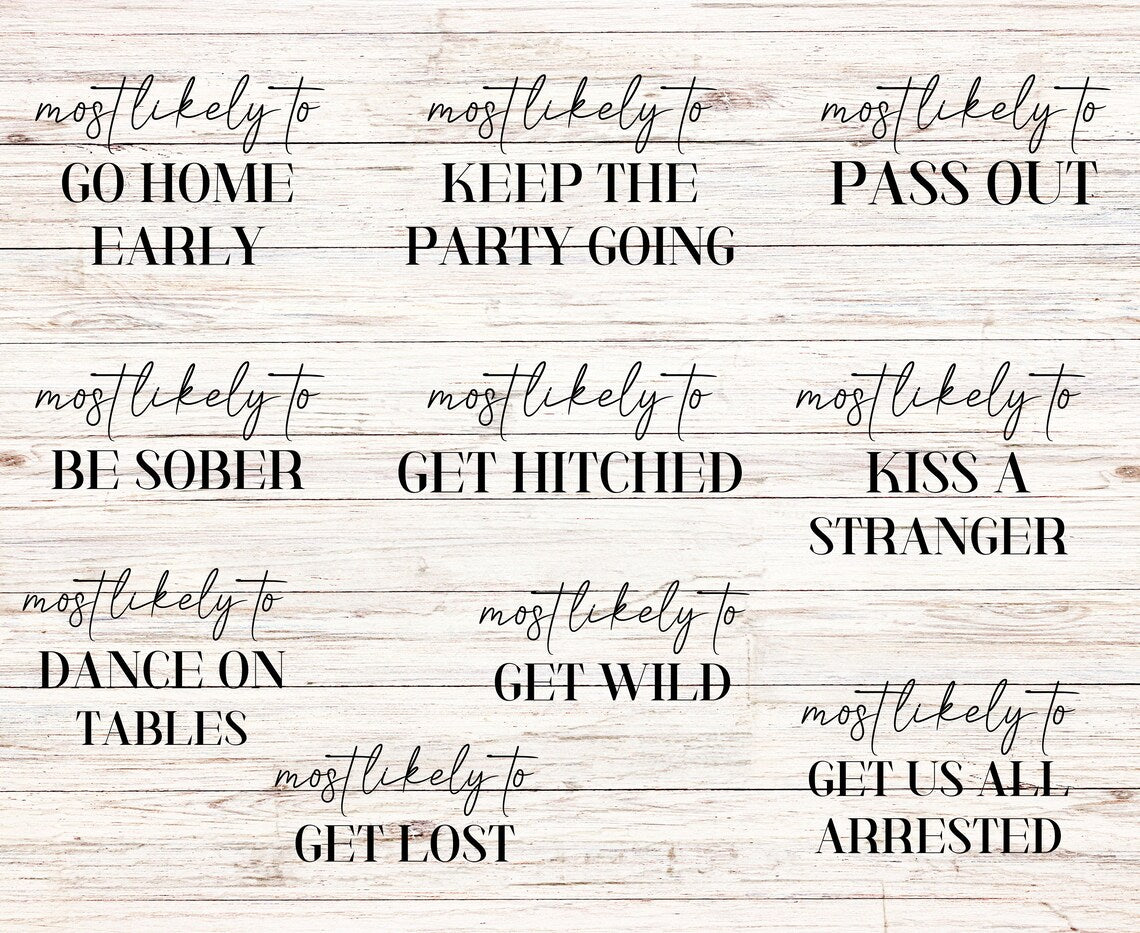 most likely to
GO HOME
EARLY
most likely to
KEEP THE
PARTY GOING
most likely to
PASS OUT
most likely to
BE SOBER
most likely to
GET HITCHED
most likely to
KISS A
STRANGER
most likely to
DANCE ON
TABLES
most likely to
GET WILD
most likely to
GET LOST
most likely to
GET US ALL
ARRESTED